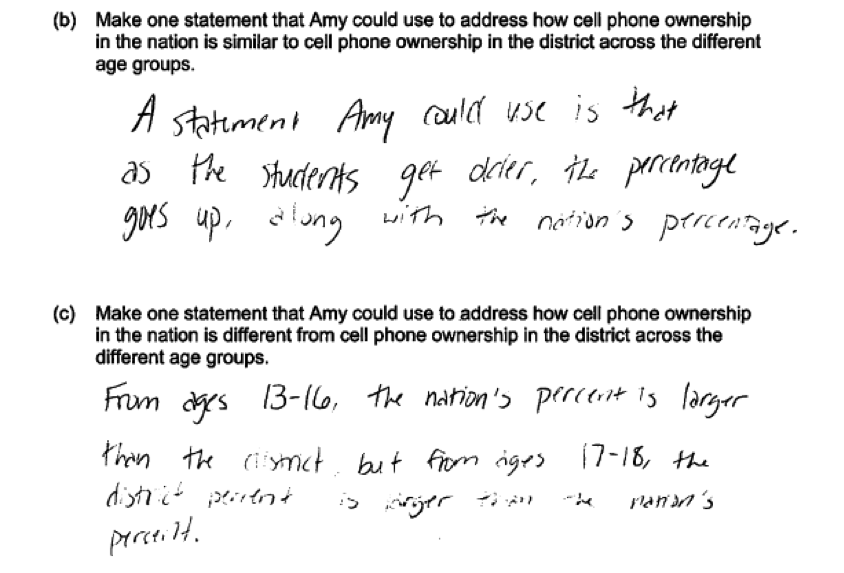 (b) Make one statement that Amy could use to address how cell phone ownership
in the nation is similar to cell phone ownership in the district across the different
age groups.
A statement Amy could use is that
as the students get older, the percentage
goes up, along with the nation's percentage.
(c) Make one statement that Amy could use to address how cell phone ownership
in the nation is different from cell phone ownership in the district across the
different age groups.
From ages 13-16, the nation's percent is larger
than the district, but from ages 17-18, the
district percent is larger than the nation's
percent.